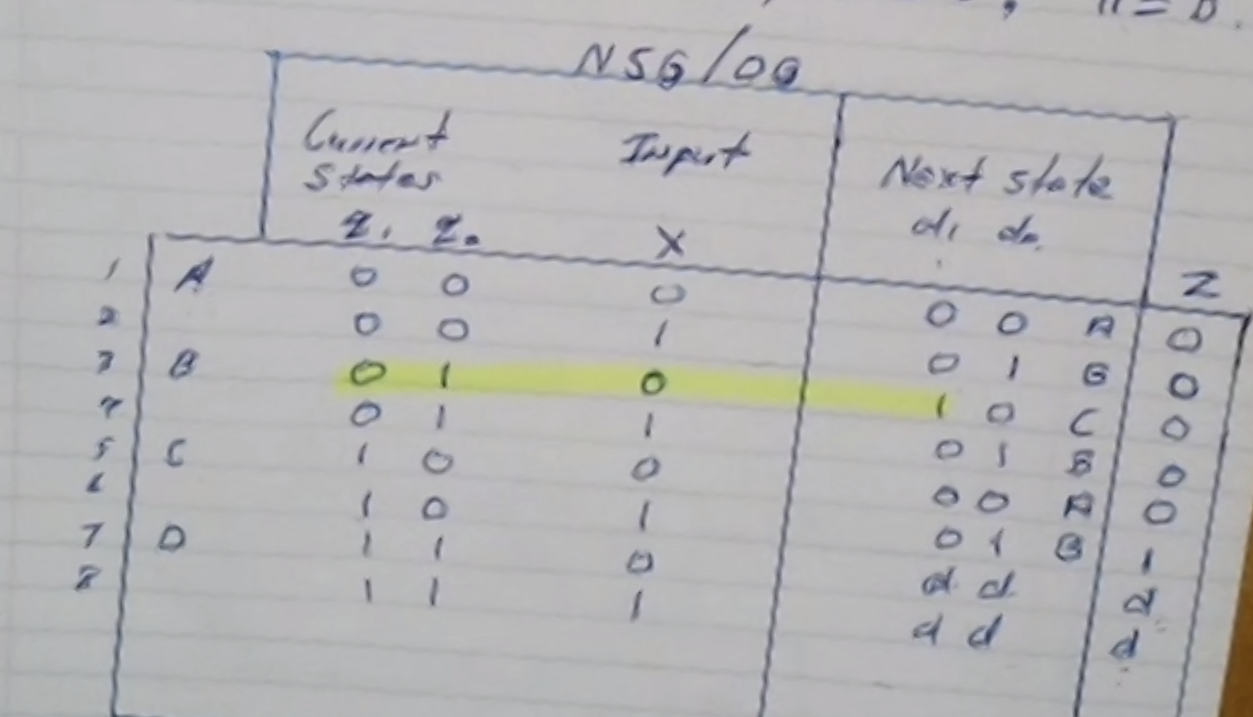 n = b.
NSG/OG
Current States Input Next state
q1 q0 X d1 d0 Z
1 A 0 0 0 0 0 A 0
2 0 0 1 0 1 B 0
3 B 0 1 0 1 0 C 0
4 0 1 1 0 1 B 0
5 C 1 0 0 0 0 A 0
6 1 0 1 0 1 B 1
7 D 1 1 0 d d d
8 1 1 1 d d d